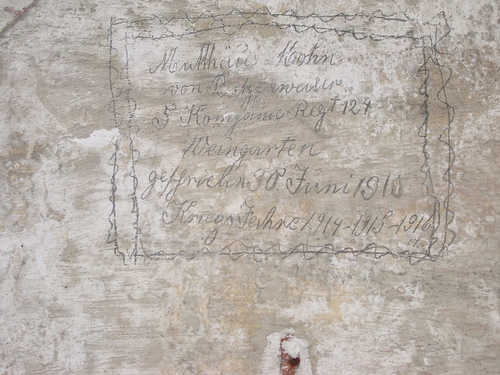 Matthäus Mohn
von
5te Kompanie Regt 124
Weingarten
geschrieben 30 Juni 1916
Kriegs Jahre 1914-1915-1916